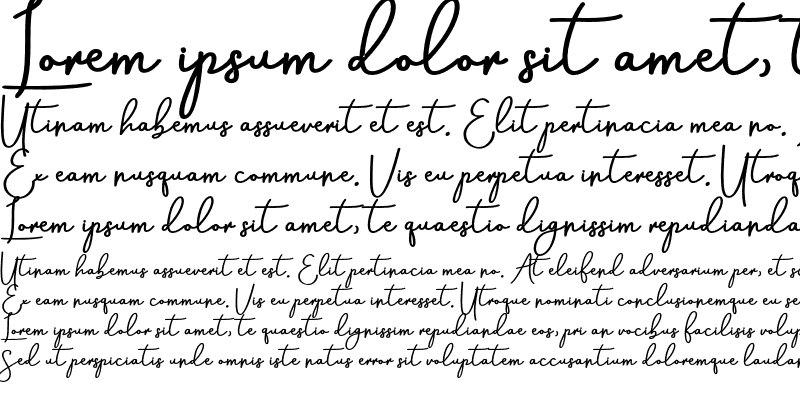 Lorem ipsum dolor sit amet,
Utinam habemus assueverit et est. Elit pertinacia mea no.
Ex eam nusquam commune. Vis eu perpetua interesset.
Lorem ipsum dolor sit amet, te quaestio dignissim
Utinam habemus assueverit et est. Elit pertinacia mea no. At eleifend adversarium per, et
Ex eam nusquam commune. Vis eu perpetua interesset. Utroque nominati conclusionemque eu
Lorem ipsum dolor sit amet, te quaestio dignissim repudiandae eos, pri an vocibus facilisis
Sed ut perspiciatis unde omnis iste natus error sit voluptatem accusantium doloremque